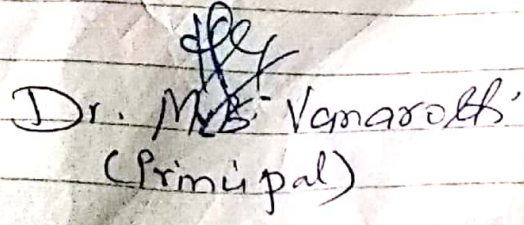 Dr. M.B. Vanarotti
(Principal)